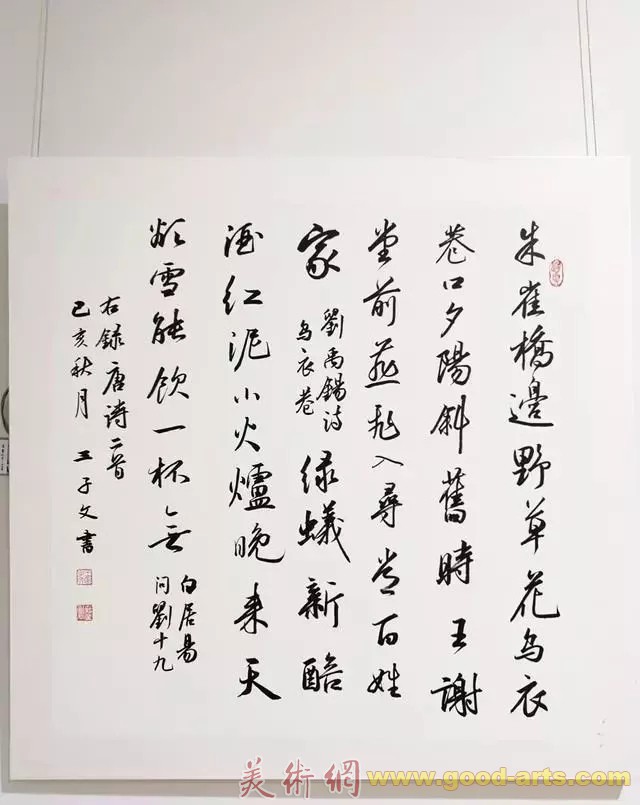 朱雀橋邊野草花烏衣
巷口夕陽斜舊時王謝
堂前燕飛入尋常百姓
家
劉禹錫詩
烏衣巷
綠蟻新醅
酒紅泥小火爐晚來天
欲雪能飲一杯無
白居易
问劉十九
右録唐詩二首
己亥秋月 王子文書
美術網 www.good-arts.com